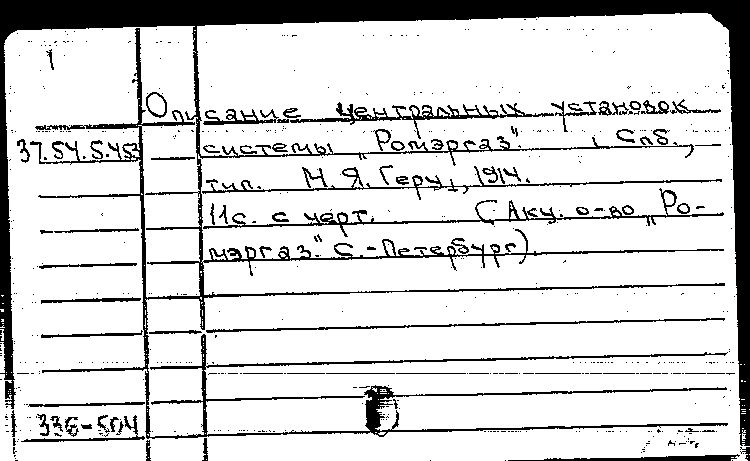 1
Описание центральных установок
37.54.5.453 системы „Ромэргаз". Спб.,
тип. М. Я. Геру, 1914.
11с. с черт. (Акц. о-во „Ро-
мэргаз." С.-Петербург).
336-504